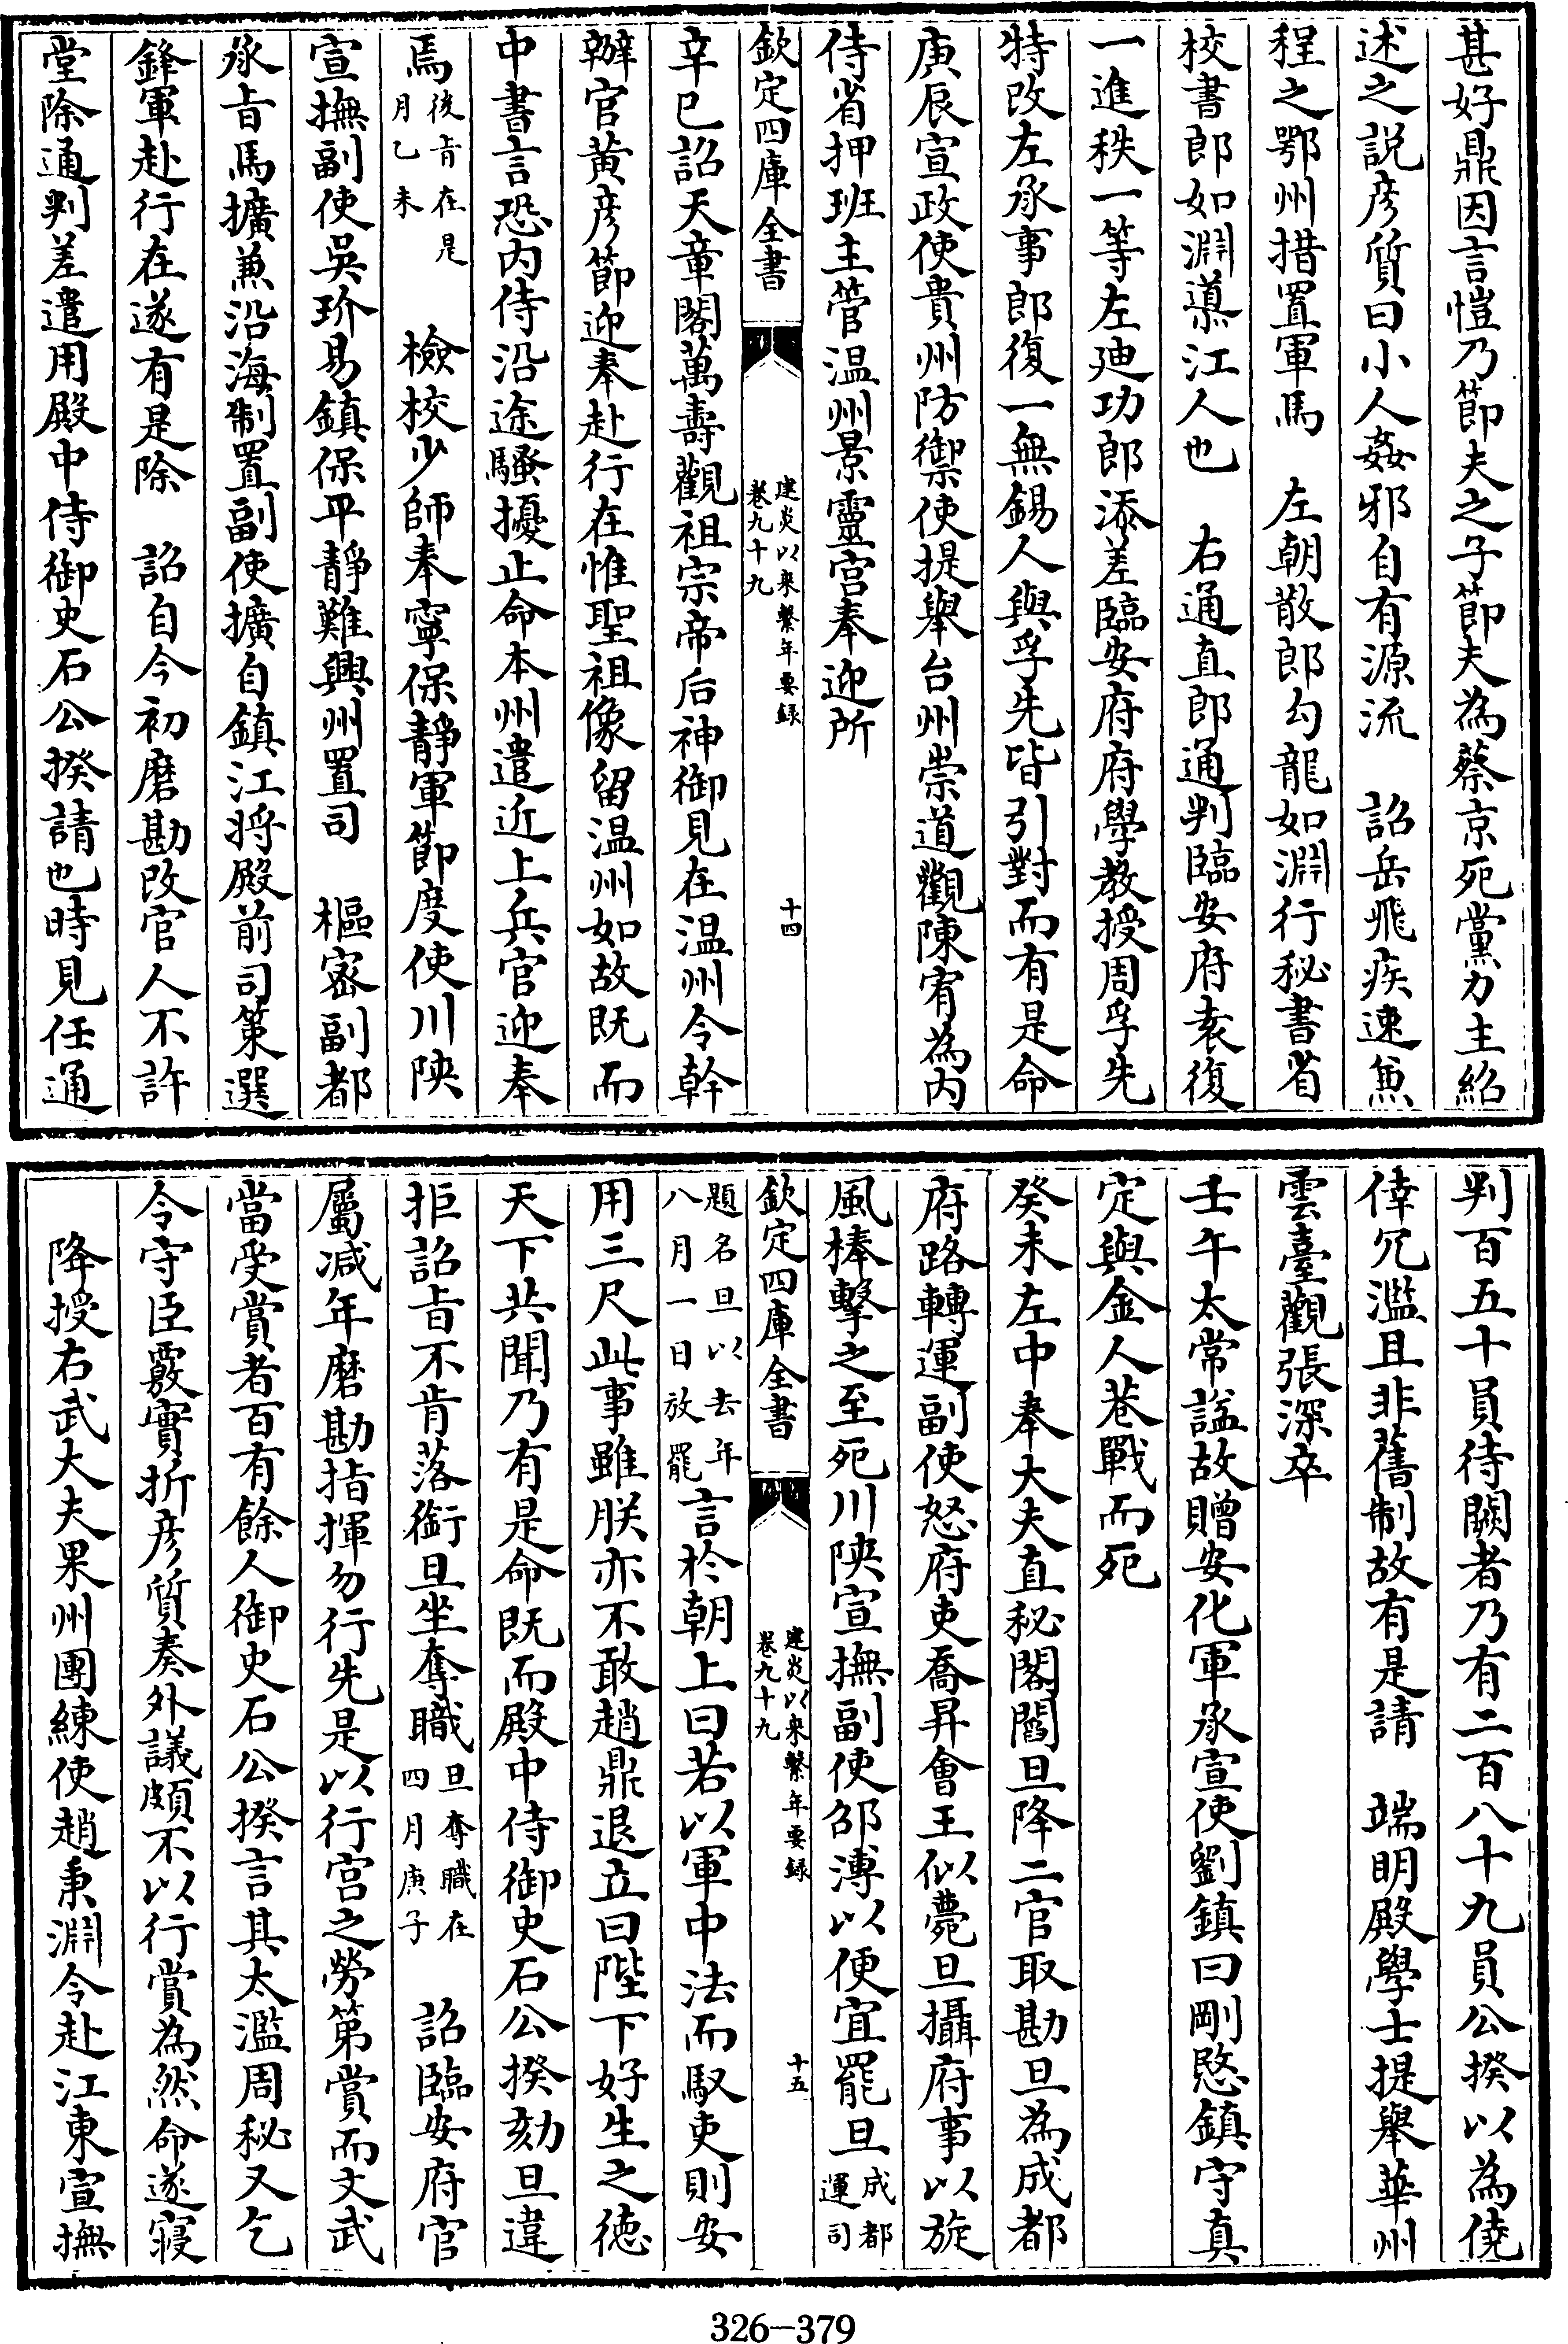 甚好鼎因言愷乃節夫之子節夫為蔡京死黨力主紹
述之説彦質曰小人姦邪自有源流　詔岳飛疾速兼
程之鄂州措置軍馬　左朝散郎勾龍如淵行秘書省
校書郎如淵導江人也　右通直郎通判臨安府袁復
一進秩一等左廸功郎添差臨安府府學教授周孚先
特改左承事郎復一無錫人與孚先皆引對而有是命
庚辰宣政使貴州防禦使提舉台州崇道觀陳宥為内
侍省押班主管温州景靈宫奉迎所
欽定四庫全書
建炎以來繫年要録
卷九十九
十四
辛巳詔天章閣萬壽觀祖宗帝后神御見在温州令幹
辦官黄彦節迎奉赴行在惟聖祖像留温州如故既而
中書言恐内侍沿途騷擾止命本州遣近上兵官迎奉
焉後㫖在是月乙未　檢校少師奉寧保靜軍節度使川陜
宣撫副使吳玠易鎮保平靜難興州置司　樞密副都
承㫖馬擴兼沿海制置副使擴自鎮江將殿前司策選
鋒軍赴行在遂有是除　詔自今初磨勘改官人不許
堂除通判差遣用殿中侍御史石公揆請也時見任通
判百五十員待闕者乃有二百八十九員公揆以為僥
倖冗濫且非舊制故有是請　端明殿學士提舉華州
雲臺觀張深卒
壬午太常謚故贈安化軍承宣使劉鎮曰剛愍鎮守真
定與金人巷戰而死
癸未左中奉大夫直秘閣閻旦降二官取勘旦為成都
府路轉運副使怒府吏喬昇會王似薨旦攝府事以旋
風棒擊之至死川陜宣撫副使邵溥以便宜罷旦成都運司
欽定四庫全書
建炎以來繫年要録
卷九十九
十五
題名旦以去年八月一日放罷言於朝上曰若以軍中法而馭吏則安
用三尺此事雖朕亦不敢趙鼎退立曰陛下好生之德
天下共聞乃有是命既而殿中侍御史石公揆劾旦違
拒詔㫖不肯落銜旦坐奪職旦奪職在四月庚子　詔臨安府官
屬减年磨勘指揮勿行先是以行宫之勞第賞而文武
當受賞者百有餘人御史石公揆言其太濫周秘又乞
令守臣覈實折彦質奏外議頗不以行賞為然命遂寢
降授右武大夫果州團練使趙秉淵令赴江東宣撫
326－379